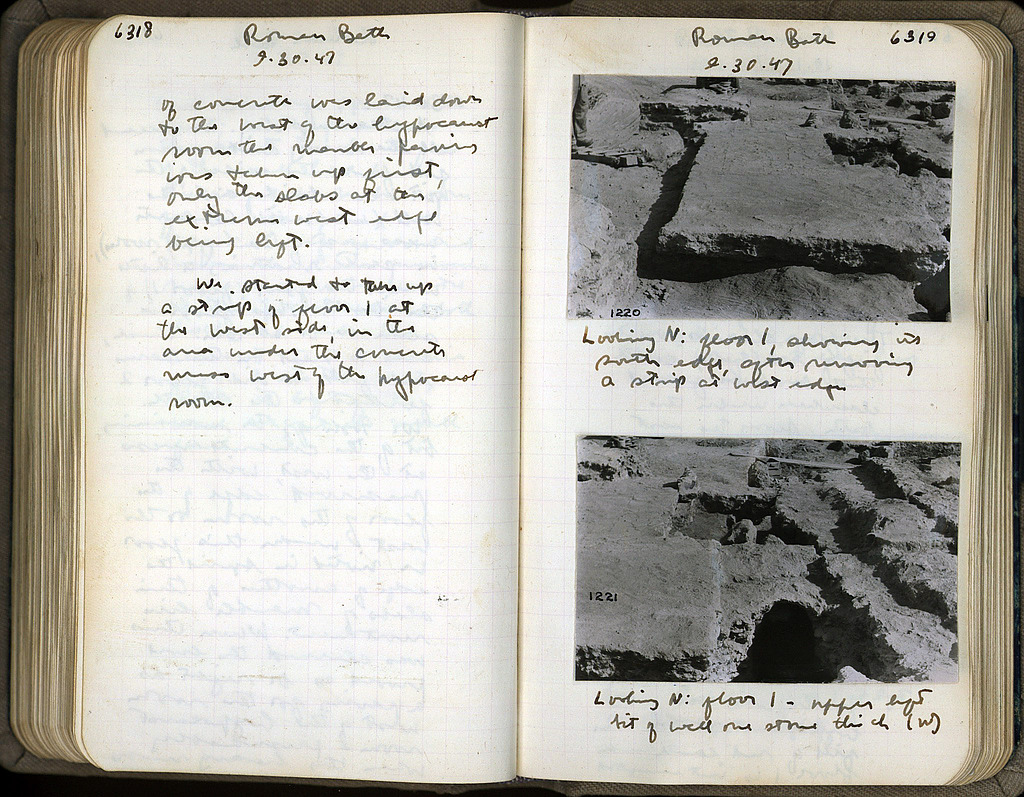 6318
Roman Bath
9.30.47
of concrete was laid down
to the west of the hypocaust
room the marble paving
was taken up first,
only the slabs at the
extreme west edge
being left.
We started to take up
a strip of floor 1 at
the west side, in the
area under the concrete
mass west of the hypocaust
room.
Roman Bath
6319
9.30.47
1220
Looking N: floor 1, showing its
south edge, after removing
a strip at west edge
1221
Looking N: floor 1 - upper left
bit of wall one stone thick (W)